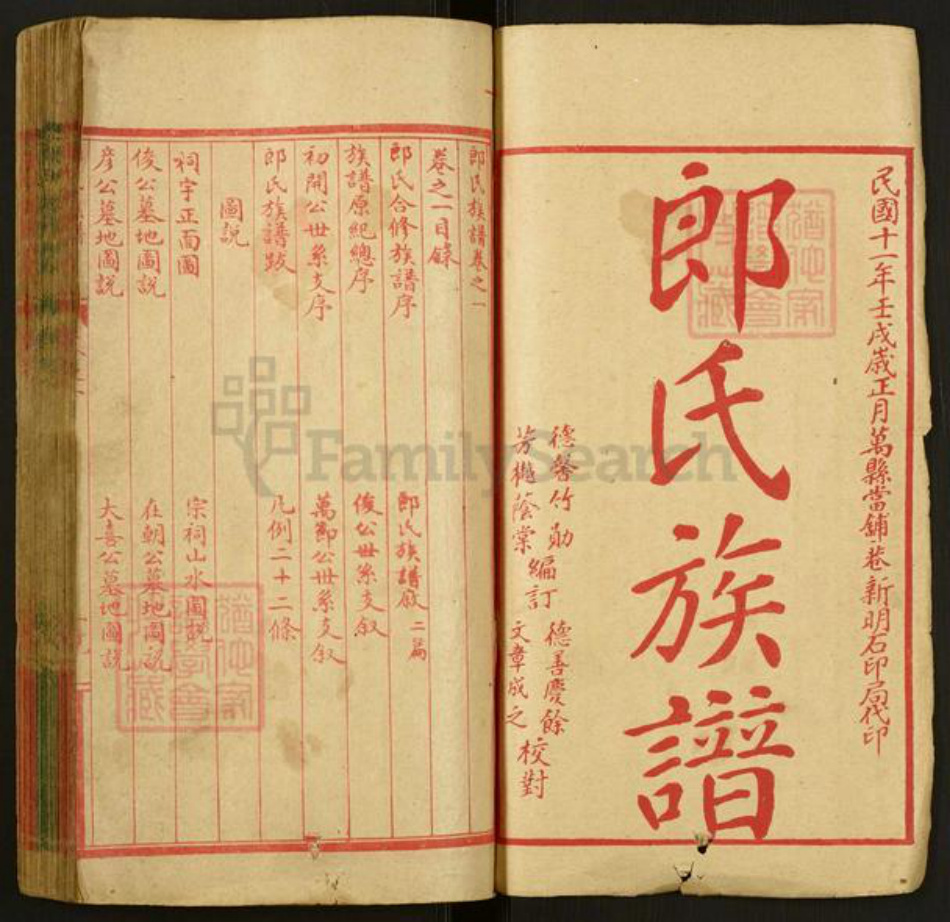 民國十一年壬戌歲正月萬縣當鋪巷新明石印局代印
郎氏族譜
德馨竹勛
芳樾蔭棠
編訂
德善慶餘
文章成之
校對
郎氏族譜卷之一
卷之一目錄
郎氏合修族譜序 郎氏族譜敘二篇
族譜原紀總序 俊公世系支叙
初開公世系支序 萬郎公世系支叙
郎氏族譜跋 凡例二十二條
圖說
祠宇正面圖 宗祠山水圖說
俊公墓地圖說 在朝公墓地圖說
彦公墓地圖說 大喜公墓地圖說
FamilySearch